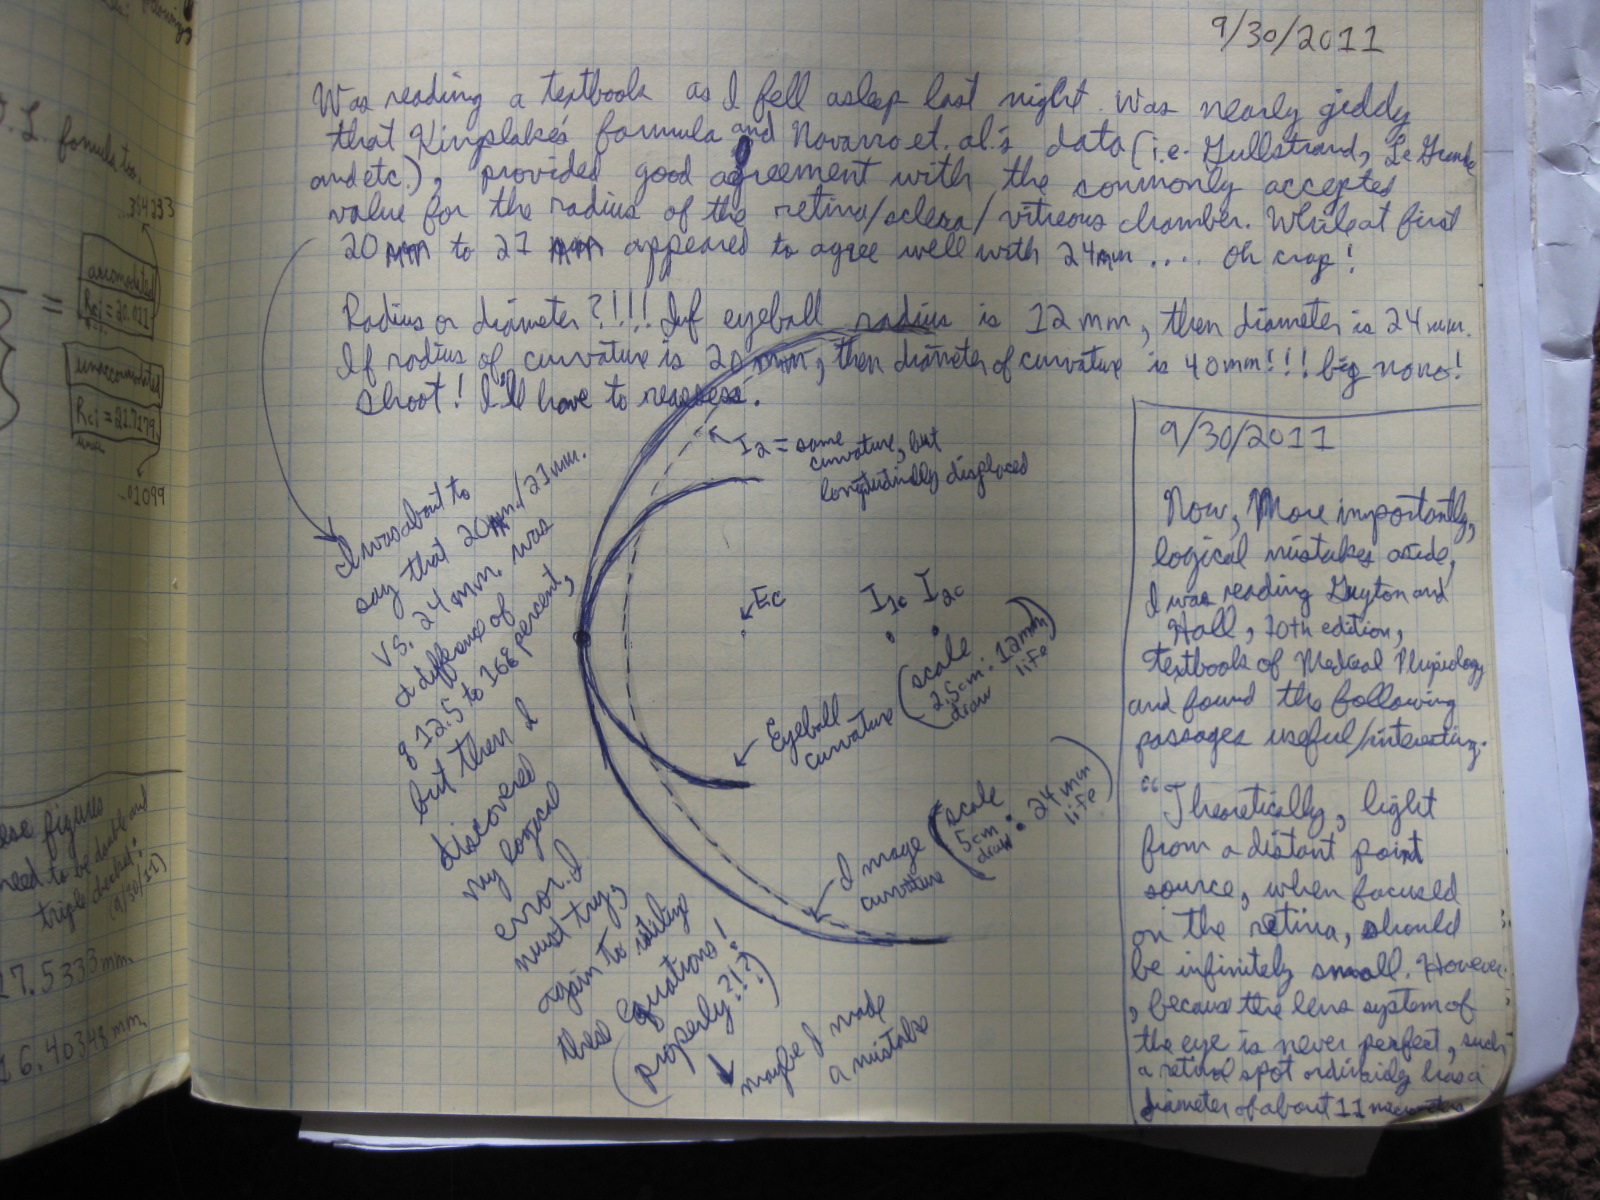 following
D. L. formula too.
...354293
accomodated
Rci = 20.011
=
unaccomodated
Rci = 21.7179
...01099
these figures
need to be double and
triple checked!
(9/30/11)
17.5333 mm.
16.40348 mm.
9/30/2011
Was reading a textbook as I fell asleep last night. Was nearly giddy
that Kingslake's formula and Navarro et. al.'s data (i.e. Gullstrand, Le Grande
and etc.), provided good agreement with the commonly accepted
value for the radius of the retina/sclera/vitreous chamber. While at first
20 mm to 21 mm appeared to agree well with 24mm .... Oh crap!
Radius or diameter?!!!! If eyeball radius is 12 mm, then diameter is 24 mm.
If radius of curvature is 20 mm, then diameter of curvature is 40mm!!! big nono!
Shoot! I'll have to reassess.
I was about to
say that 20mm/21mm.
vs. 24 mm. was
a difference of
12.5 to 16% percent,
but then I
discovered
my logical
error. I
must try,
again to
these equations!
(properly?!?!)
maybe I made
a mistake
I2 = same
curvature, but
longitudinally displaced
Ec
I1c I2c
Eyeball
curvature
(scale
2.5cm : 12mm
draw life)
Image
curvature
(scale
5cm : 24mm
draw life)
9/30/2011
Now, More importantly,
logical mistakes aside,
I was reading Guyton and
Hall, 10th edition,
Textbook of Medical Physiology
and found the following
passages useful/interesting.
"Theoretically, light
from a distant point
source, when focused
on the retina, should
be infinitely small. However
, because the lens system of
the eye is never perfect, such
a retinal spot ordinarily has a
diameter of about 11 micrometers